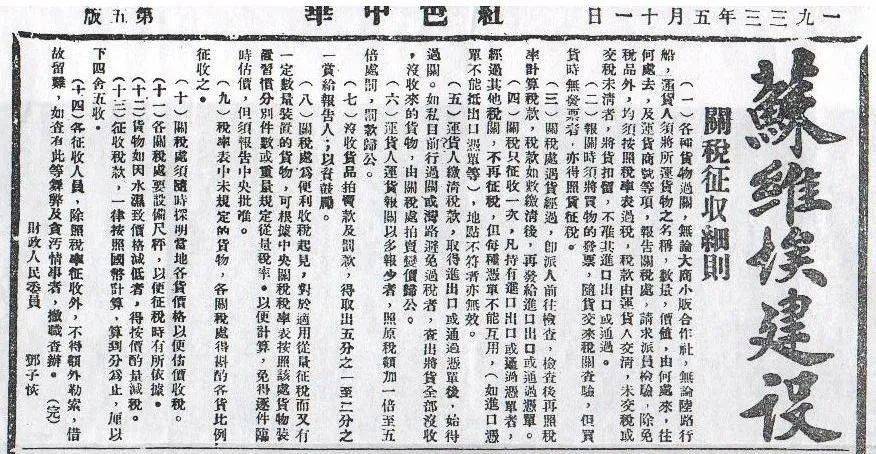 一九三三年五月十一日
紅色中華
第五版
蘇維埃建设
關税征收細則
（一）各種貨物過關，無論大商小販合作社，無論陸路行
船，運貨人須將所運貨物之名稱，數量，價值，由何處來，往
何處去，及運貨商號等項，報告關税處，請求派員檢驗，除免
税品外，均須按照税率表過税，税款由運貨人交清，未交税或
交税未清者，將貨扣留，不准其進口出口或通過。
（二）報關時須將買物的發票，隨貨交來税關查驗，但買
貨時無發票者，亦得照貨征税。
（三）關税處遇貨經過，卽派人前往檢查，檢查後再照税
率計算税款，税款如數繳清後，再發給進口出口或通過憑單。
（四）關税只征收一次，凡持有進口出口或通過憑單者，
經過其他税關，不再征税，但每種憑單不能互用，（如進口憑
單不能抵出口憑單等），地點不符者亦無效。
（五）運貨人繳清税款，取得進出口或通過憑單後，始得
過關。如私自前行過關或灣路避免過税者，查出將貨全部沒收
，沒收來的貨物，由關税處拍賣變價歸公。
（六）運貨人運貨報關以多報少者，照原税額加一倍至五
倍處罰，罰款歸公。
（七）沒收貨品拍賣款及罰款，得取出五分之一至二分之
一賞給報告人；以資鼓勵。
（八）關税處爲便利收税起見，對於適用從量征税而又有
一定數量裝置的貨物，可根據中央關税税率表按照該處貨物裝
置習慣分別件數或重量規定從量税率。以便計算，免得逐件臨
時估價，但須報告中央批准。
（九）税率表中未規定的貨物，各關税處得斟酌各貨比例
征收之。
（十）關税處須隨時探明當地各貨價格以便估價收税。
（十一）各關税處要設備尺秤，以便征税時有所依據。
（十二）貨物如因水濕致價格減低者，得按價酌量減税。
（十三）征收税款，一律按照國幣計算，算到分爲止，厘以
下四舍五收。
（十四）各征收人員，除照税率征收外，不得額外勒索，借
故留難，如查有此等舞弊及貪汚情事者，撤職查辦。（完）
財政人民委員　鄧子恢